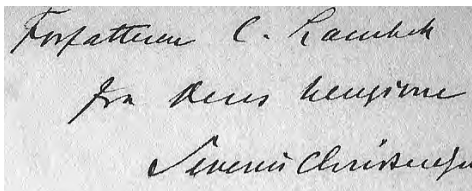 Forfatteren C. Lambek
fra Deres hengivne
Severin Christensen